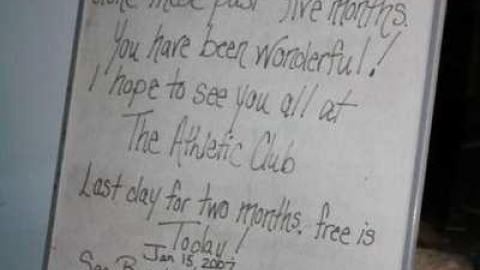 these past five months.
You have been wonderful!
I hope to see you all at
The Athletic Club
Last day for two months. free is
Today!
Jan 15, 2007